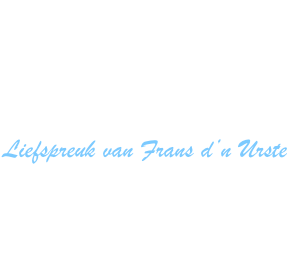 Liefspreuk van Frans d'n Urste